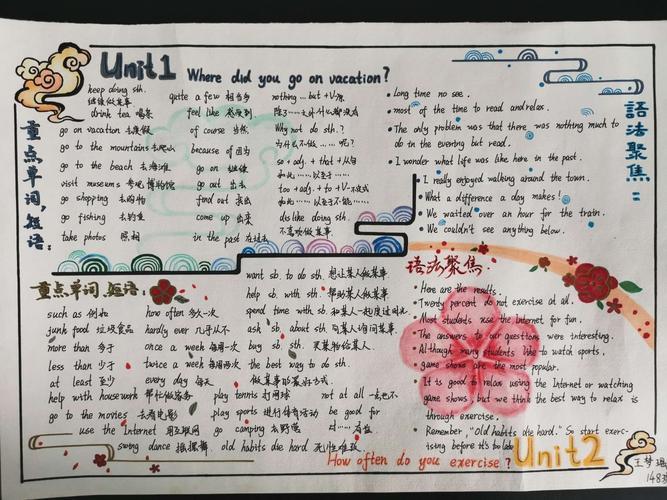 Unit1 Where did you go on vacation?
重点单词,短语:
keep doing sth.
继续做某事
drink tea 喝茶
go on vacation 去度假
go to the mountains 去爬山
go to the beach 去海滩
visit museums 参观博物馆
go shopping 去购物
go fishing 去钓鱼
take photos 照相
quite a few 相当多
feel like 感觉到
of course 当然
because of 因为
go on 继续
go out 出去
find out 找出
come up 出来
in the past 在过去
nothing ... but + V-原
除了……之外什么都没有
Why not do sth.?
为什么不做……呢?
so + adj. + that + 从句
如此……以至于……
too + adj. + to + V-不定式
如此……以至于不能……
dislike doing sth.
不喜欢做某事
語法聚焦:
Long time no see.
most of the time to read and relax.
The only problem was that there was nothing much to
do in the evening but read.
I wonder what life was like here in the past.
I really enjoyed walking around the town.
What a difference a day makes!
We waited over an hour for the train.
We couldn't see anything below.
重点单词、短语:
such as 例如
junk food 垃圾食品
more than 多于
less than 少于
at least 至少
help with housework 帮忙做家务
go to the movies 去看电影
use the Internet 用互联网
swing dance 摇摆舞
how often 多久一次
hardly ever 几乎从不
once a week 每周一次
twice a week 每周两次
every day 每天
play tennis 打网球
play sports 进行体育活动
go camping 去野营
old habits die hard 积习难改
want sb. to do sth. 想让某人做某事
help sb. with sth. 帮助某人做某事
spend time with sb. 和某人一起度过时光
ask sb. about sth 向某人询问某事
buy sb. sth. 买某物给某人
the best way to do sth.
做某事的最好方式
not at all 一点也不
be good for
对……有益
语法聚焦.
Here are the results.
Twenty percent do not exercise at all.
Most students use the Internet for fun.
The answers to our questions were interesting.
Although many students like to watch sports,
game shows are the most popular.
It is good to relax using the Internet or watching
game shows but we think the best way to relax is
through exercise.
Remember, "Old habits die hard." So start exerc-
ising before it's too late
How often do you exercise? Unit2
王梦